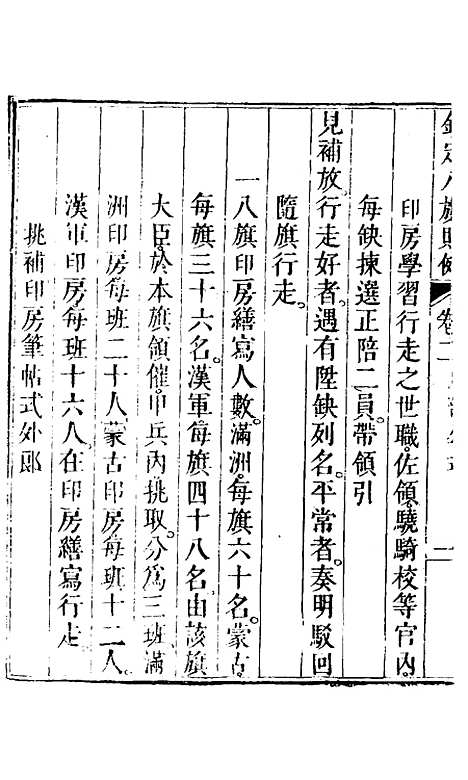 欽定八旗則例 卷二 二
印房學習行走之世職。佐領。驍騎校等官內。
每缺揀選正陪二員。帶領引
見補放。行走好者。遇有陞缺列名。平常者。奏明駁回
隨旗行走。
一八旗印房繕寫人數。滿洲。每旗六十名。蒙古。
每旗三十六名。漢軍每旗四十八名。由該旗
大臣。於本旗領催。甲兵內挑取。分為三班。滿
洲印房。每班二十人。蒙古印房。每班十二人。
漢軍印房。每班十六人。在印房繕寫行走
挑補印房筆帖式外郎